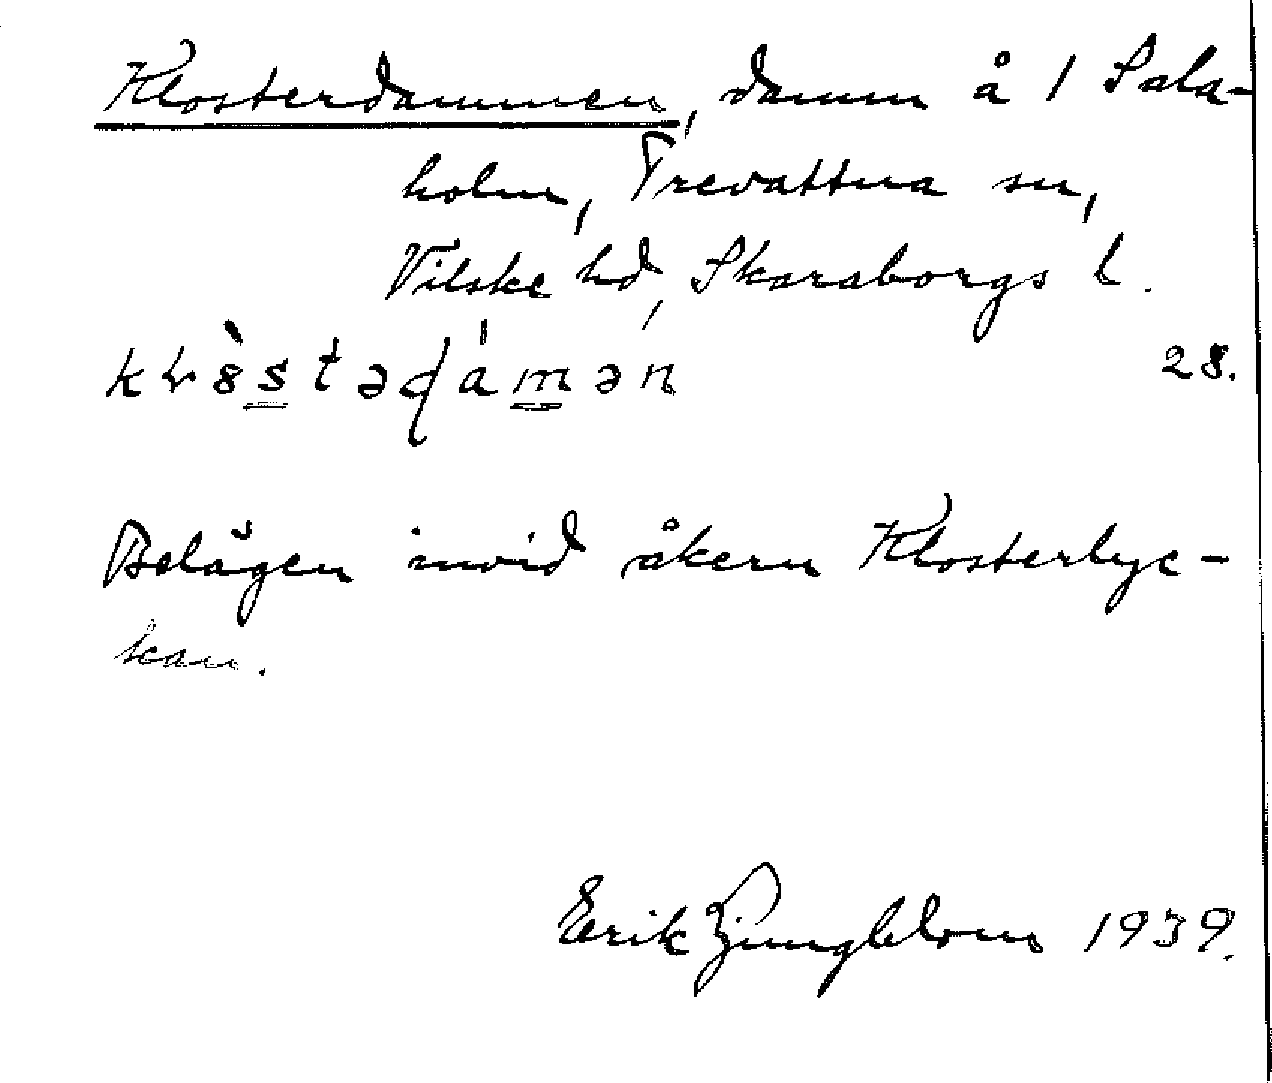 Klosterdammen, damm å 1 Sala-
holm, Trevattna sn,
Vilske hd, Skaraborgs l.
28.
Belägen invid åkern Klosterlyc-
kan.
Erik Ljungblom 1939.